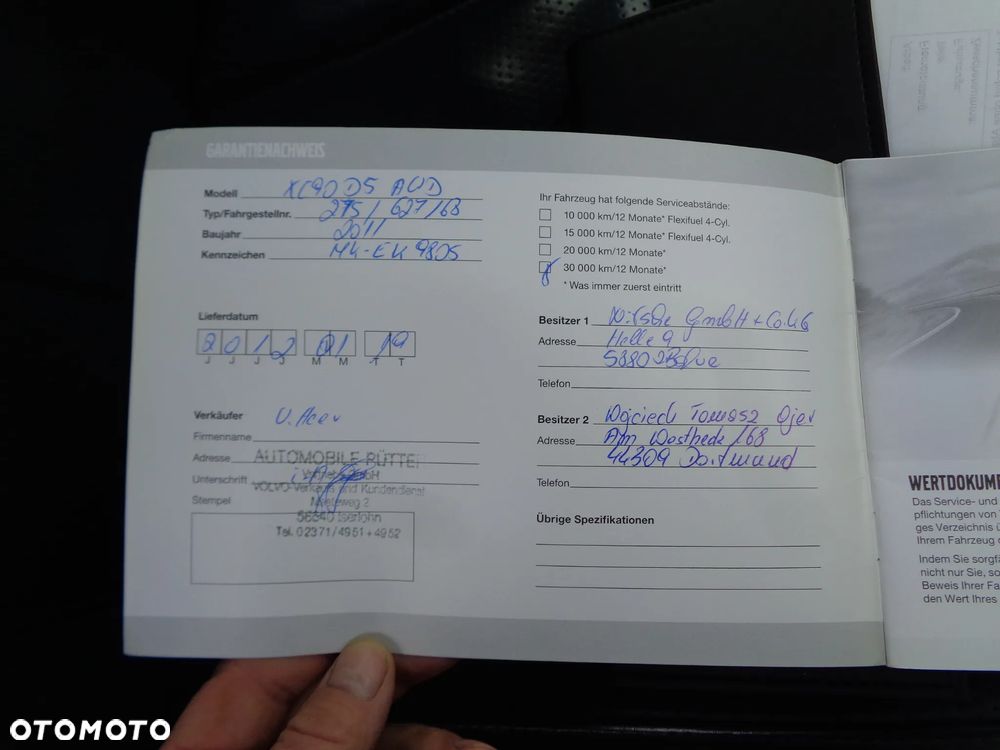 GARANTIENACHWEIS
Modell XC90 D5 AWD
Typ/Fahrgestellnr. 275/627/68
Baujahr 2011
Kennzeichen MK-EK 9805
Lieferdatum
2 0 1 2 01 19
J J J J M M T T
Verkäufer
Firmenname
Adresse AUTOMOBILE-RÜTTE
Unterschrift
VOLVO-Verkauf und Kundendienst
Stempel
58640 Iserlohn
Tel. 02371/4951+4952
Ihr Fahrzeug hat folgende Serviceabstände:
10 000 km/12 Monate* Flexifuel 4-Cyl.
15 000 km/12 Monate* Flexifuel 4-Cyl.
20 000 km/12 Monate*
30 000 km/12 Monate*
* Was immer zuerst eintritt
Besitzer 1 GmbH + Co.KG
Adresse Helle 9
58802
Telefon
Besitzer 2 Wojciech Tomasz
Adresse Am 168
44309 Dortmund
Telefon
Übrige Spezifikationen
WERTDOKUME
Das Service- und
pflichtungen von
ges Verzeichnis
Ihrem Fahrzeug
Indem Sie sorgfä
nicht nur Sie, so
Beweis Ihrer Fa
den Wert Ihres
OTOMOTO